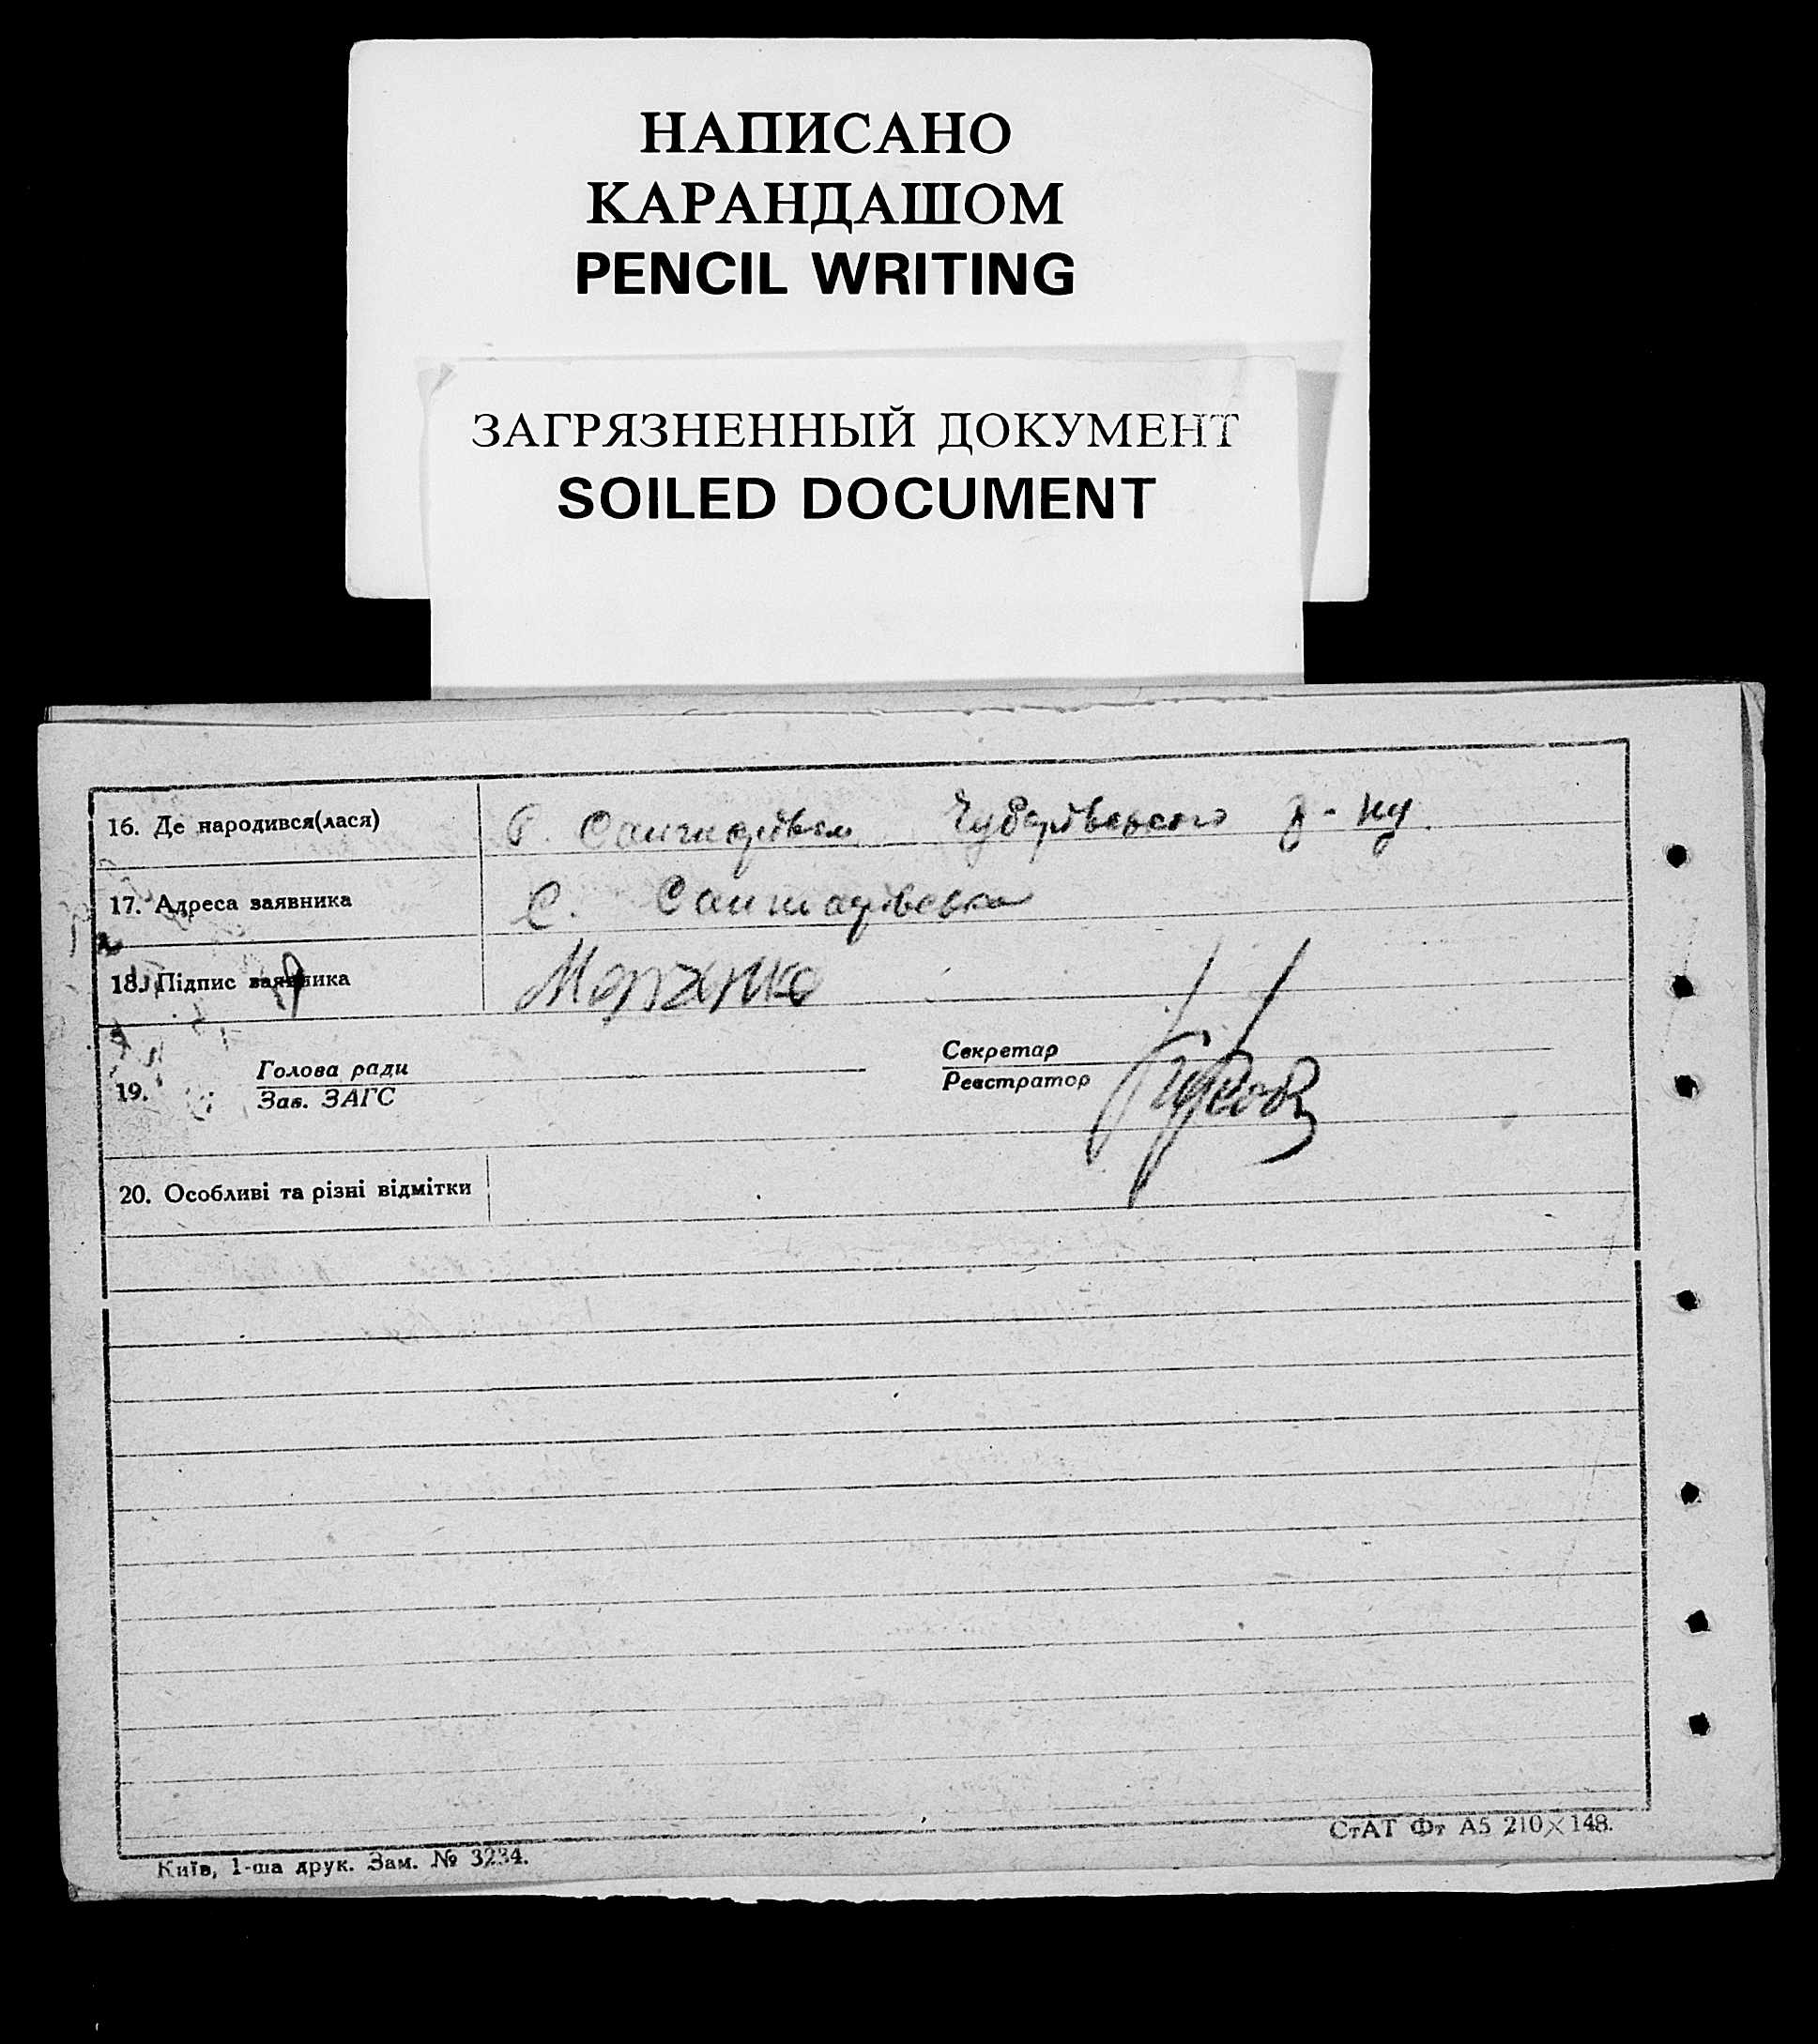 НАПИСАНО
КАРАНДАШОМ
PENCIL WRITING
ЗАГРЯЗНЕННЫЙ ДОКУМЕНТ
SOILED DOCUMENT
16. Де народився(лася) Чубарівського р-ну.
17. Адреса заявника С.
18. Підпис заявника
Секретар
Голова ради
Реєстратор
19.
Зав. ЗАГС
20. Особливі та різні відмітки
СтАТ Фт А5 210×148.
Київ, 1-ша друк. Зам. № 3234.